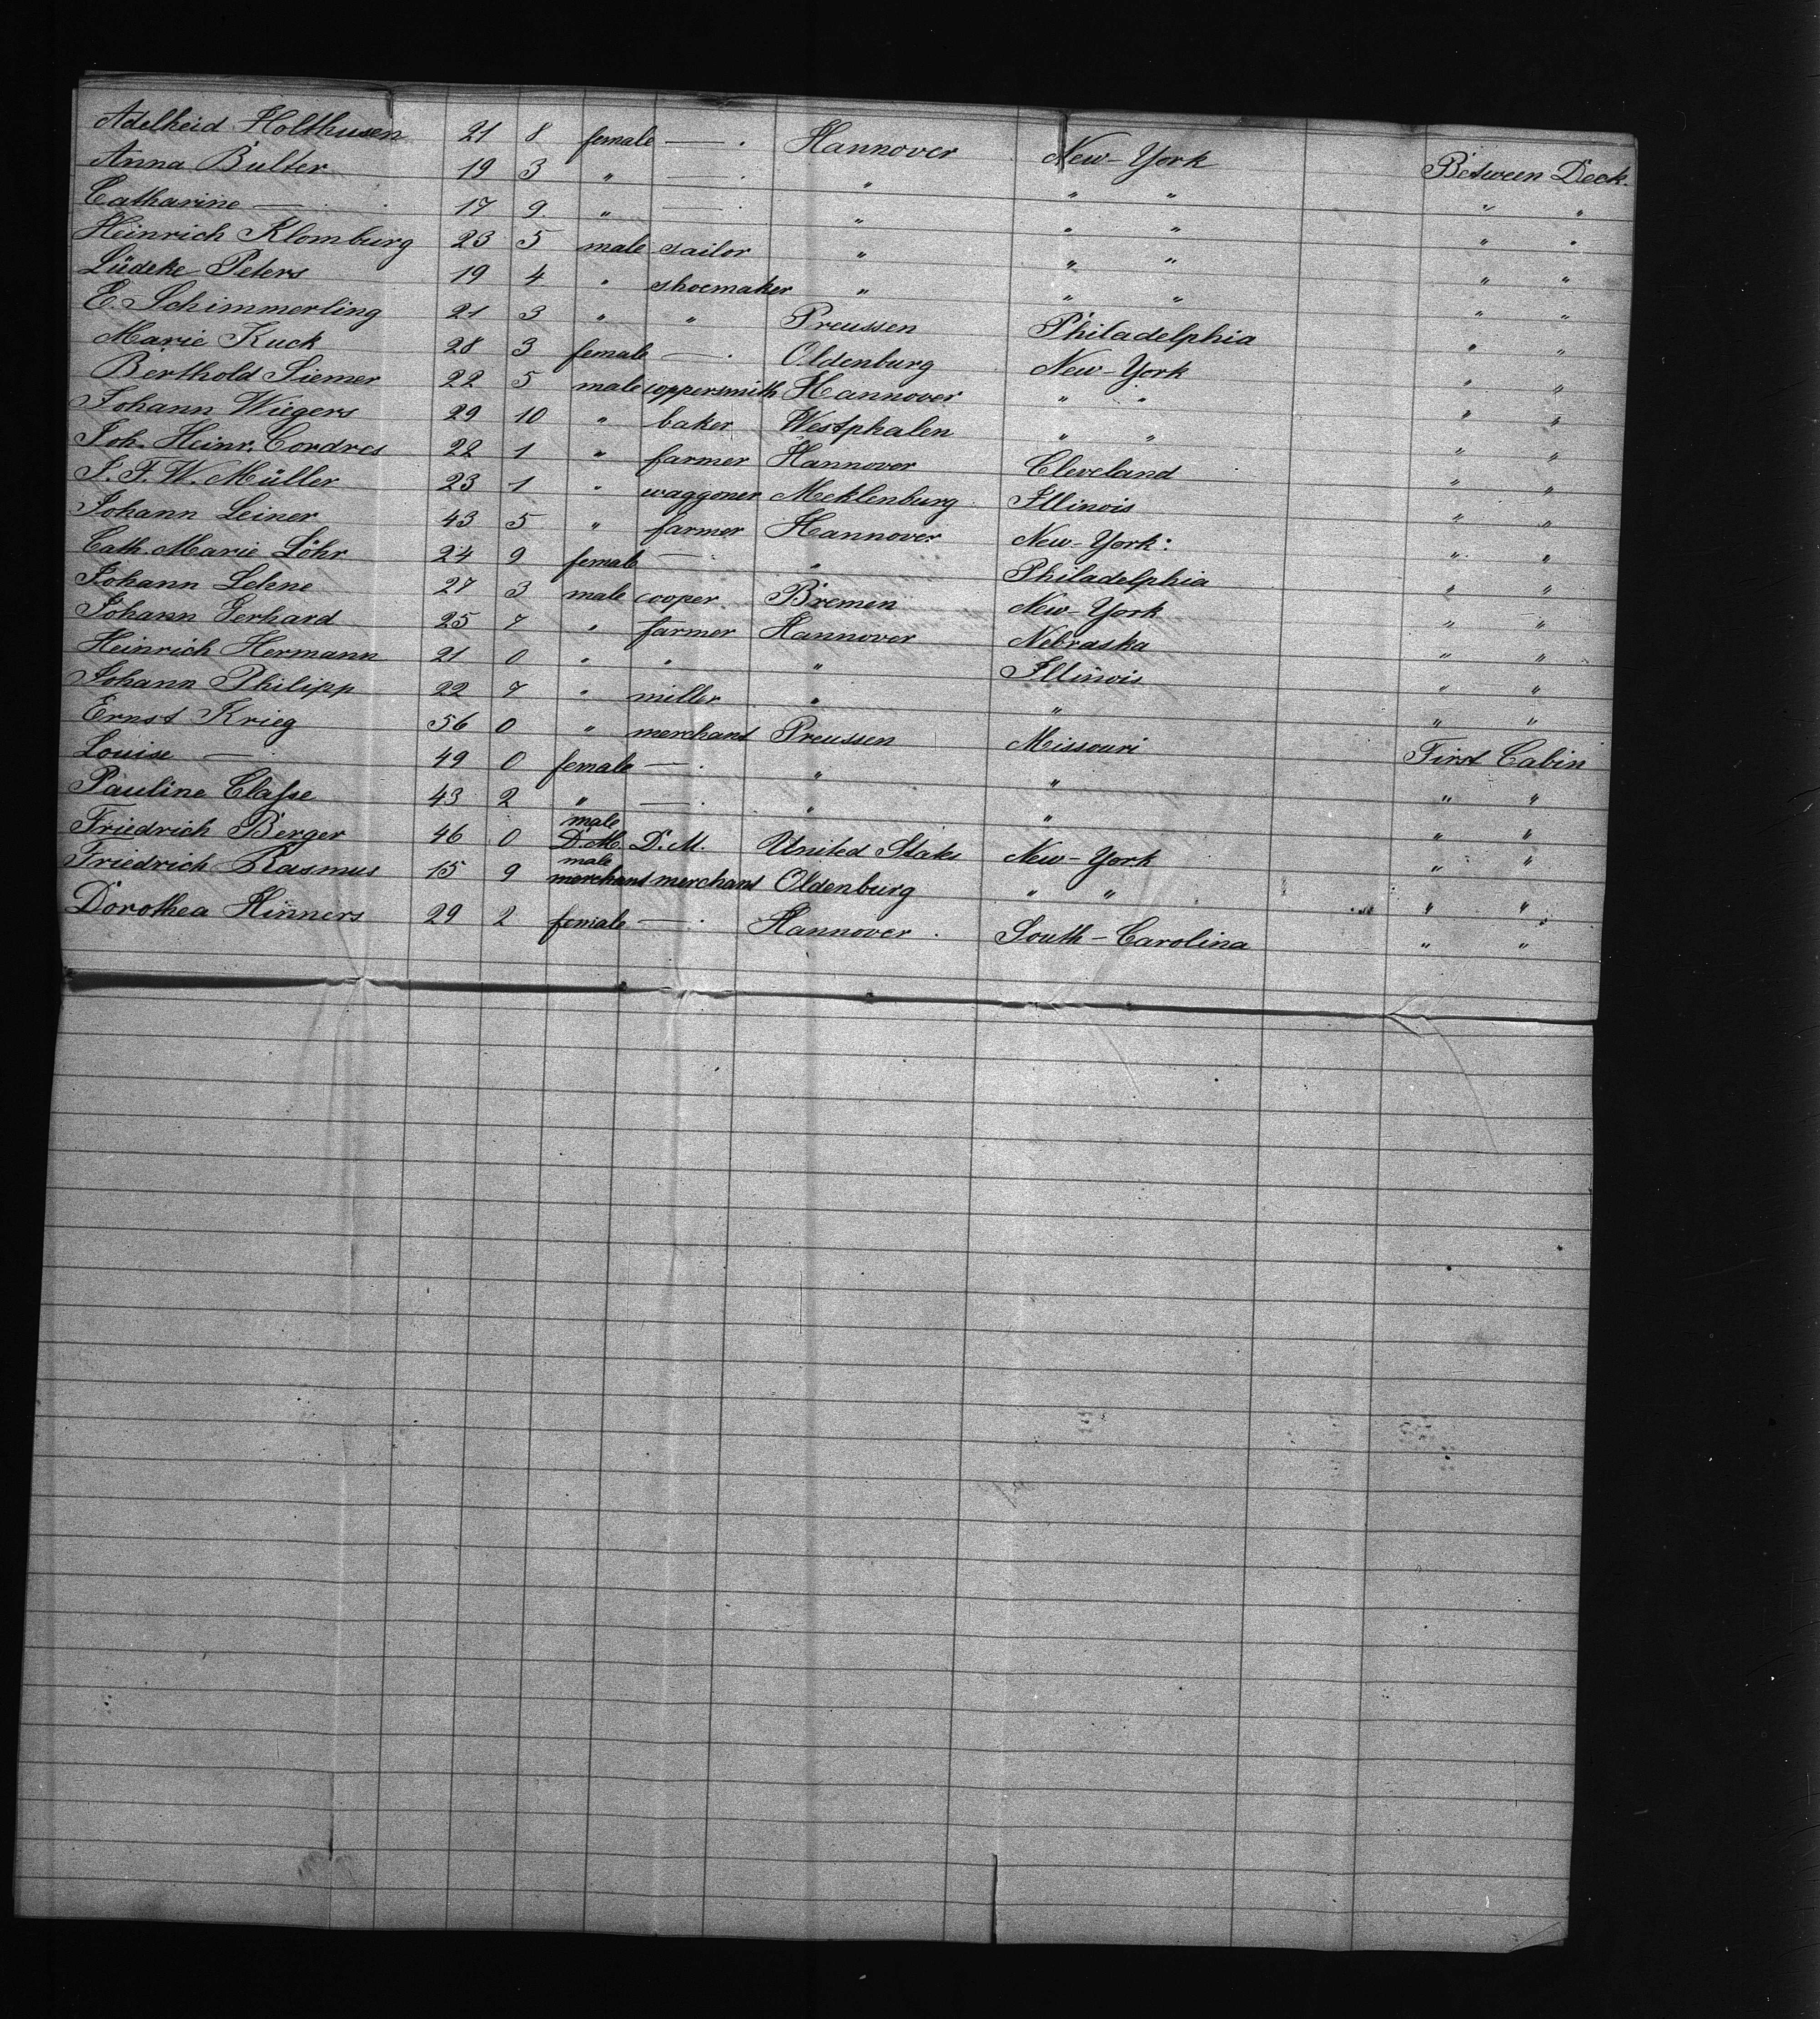 Adelheid Holthusen 21 8 female — . Hannover New-York Between Deck.
Anna Bulter 19 3 " — . " " " " "
Catharine — . 17 9 " — . " " " " "
Heinrich Klomburg 23 5 male sailor " " " " "
Lüdeke Peters 19 4 " shoemaker " " " " "
E. Schimmerling 21 3 " " Preussen Philadelphia " "
Marie Kuck 28 3 female — . Oldenburg New-York " "
Berthold Siemer 22 5 male coppersmith Hannover " " " "
Johann Wiegers 29 10 " baker Westphalen " " " "
Joh. Heinr. Cordres 22 1 " farmer Hannover Cleveland " "
J. F. W. Müller 23 1 " waggoner Meklenburg Illinois " "
Johann Leiner 43 5 " farmer Hannover New-York. " "
Cath. Marie Löhr 24 9 female — . " Philadelphia " "
Johann Lehne 27 3 male cooper Bremen New-York " "
Johann Gerhard 25 7 " farmer Hannover Nebraska " "
Heinrich Hermann 21 0 " " " Illinois " "
Johann Philipp 22 7 " miller " " " "
Ernst Krieg 56 0 " merchant Preussen Missouri First Cabin
Louise — 49 0 female — . " " " "
Pauline Claſse 43 2 " — . " " " "
male
Friedrich Berger 46 0 D. M. D. M. United States New-York " "
male
Friedrich Rasmus 15 9 merchant merchant Oldenburg " " " "
Dorothea Hinners 29 2 female — . Hannover . South-Carolina " "